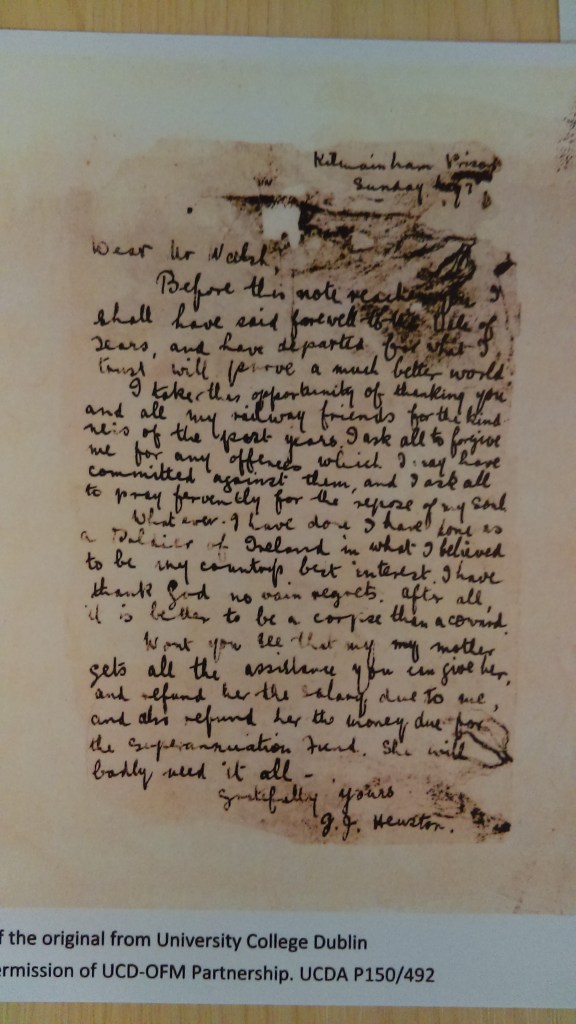 Kilmainham Prison
Sunday May 7
Dear Mr Walsh,
Before this note reaches you I
shall have said farewell to this Vale of
Tears, and have departed for what I
trust will prove a much better world.
I take this opportunity of thanking you
and all my railway friends for the kind
ness of the past years. I ask all to forgive
me for any offences which I may have
committed against them, and I ask all
to pray fervently for the repose of my soul
Whatever I have done I have done as
a Soldier of Ireland in what I believed
to be my country's best interest. I have
thank God no vain regrets. After all,
it is better to be a corpse than a coward.
Wont you see that my my mother
gets all the assistance you can give her,
and refund her the salary due to me,
and also refund her the money due for
the Superannuation Fund. She will
badly need it all -
Gratefully yours
J.J. Heuston.
f the original from University College Dublin
ermission of UCD-OFM Partnership. UCDA P150/492